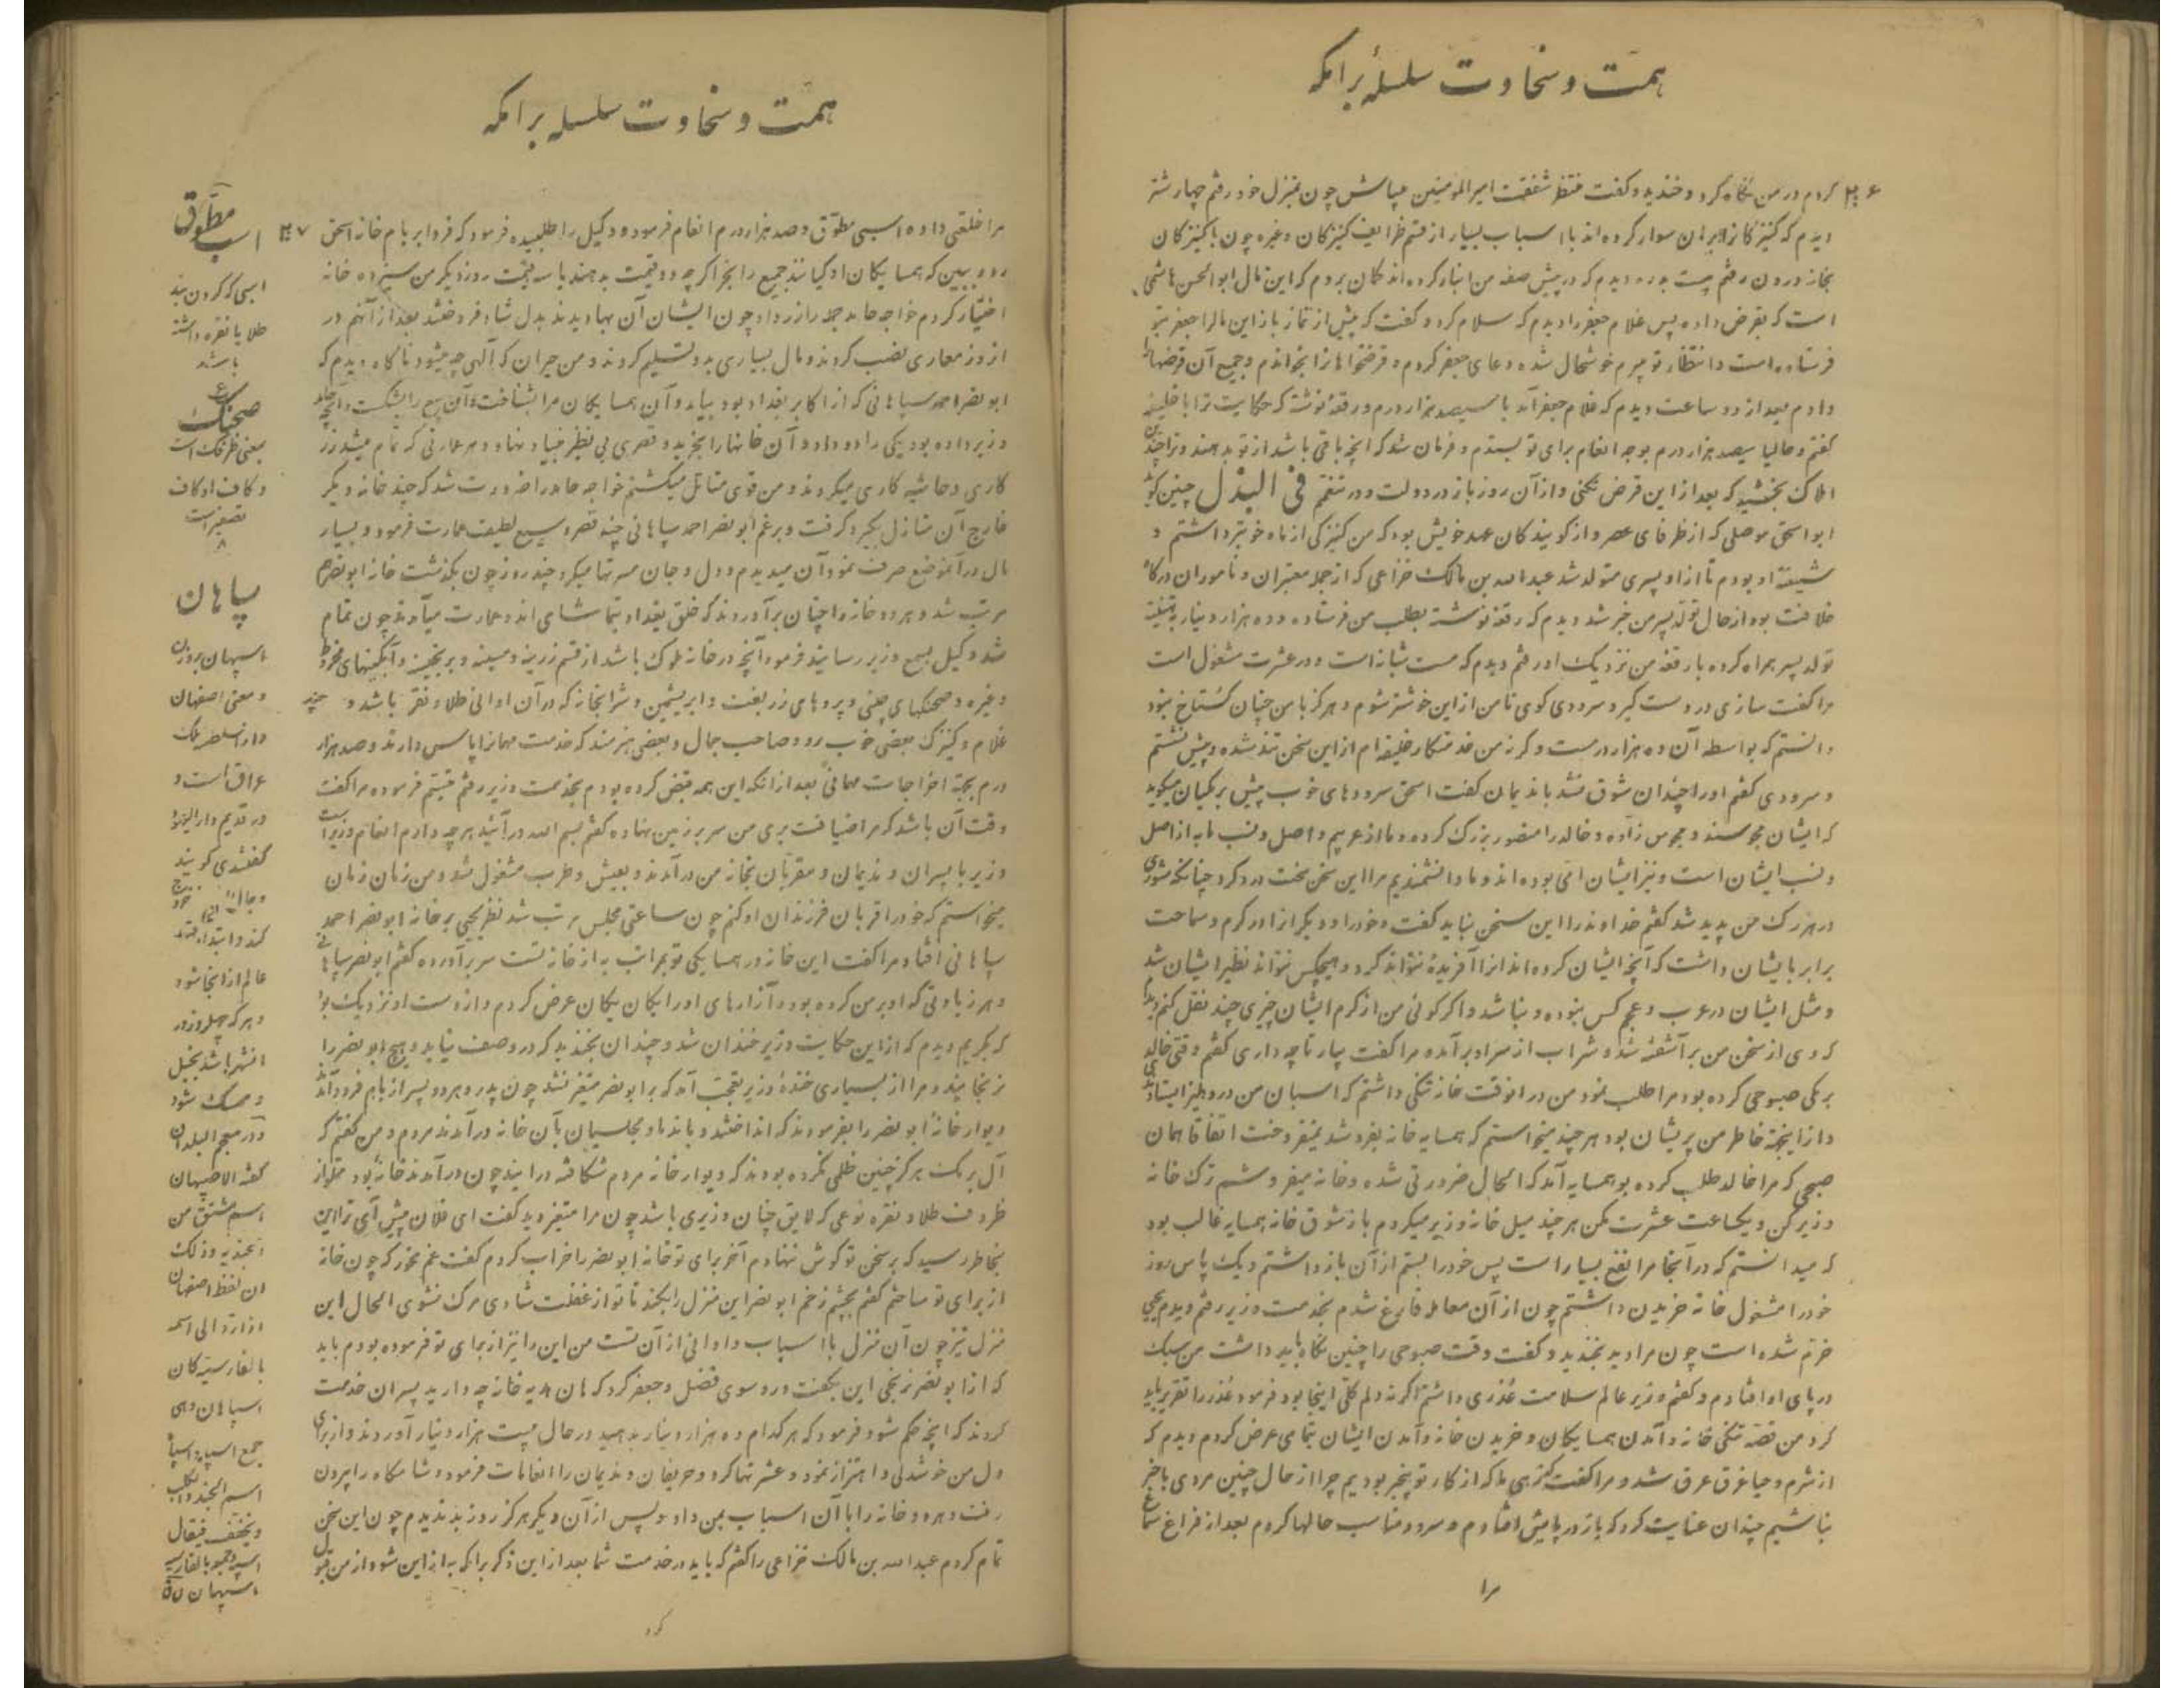 همت و سخاوت سلسلهٔ برامکه
۴۶ کردم در من نگاه کرد و خندید و گفت منتظر شفقت امیرالمؤمنین میباش چون بمنزل خود رفتم چهار شتر
دیدم که کنیزکان برآن سوار کرده‌اند با اسباب بسیار از قسم ظرایف کنیزکان و غیره چون با کنیزکان
بخانه درون رفتم بیست بدره دیدم که در پیش صفه من انبار کرده‌اند گمان بردم که این مال ابوالحسن هاشمی
است که بقرض داده پس غلام جعفر را دیدم که سلام کرد و گفت که پیش از نماز باز این مال را جعفر بتو
فرستاده است و انتظار تو میبرم خوشحال شده دعای جعفر کردم و قرضخواهانرا بخواندم و جمیع آن قرضها
دادم بعد از دو ساعت دیدم که غلام جعفر آمد با سیصد هزار درم و رقعه نوشته که حکایت ترا با خلیفه
گفتم و حالیا سیصد هزار درم بوجه انعام برای تو بستدم و فرمان شد که آنچه باقی باشد از تو بدهند و ترا چندین
املاک بخشید که بعد از این قرض نکنی و از آن روز باز در دولت و در تنعم فی البذل چنین گوید
ابواسحق موصلی که از ظرفای عصر و از گویندکان عهد خویش بود که من کنیزکی از ماه خوبتر داشتم و
شیفته او بودم تا از او پسری متولد شد عبدالله بن مالک خزاعی که از جمله معتبران و ناموران درگاه
خلافت بود از حال تولد پسر من خبر شد دیدم که رقعه نوشته بطلب من فرستاده و ده هزار دینار به تهنیت
تولد پسر همراه کرده با رقعه من نزدیک او رفتم دیدم که مست شبانه است و در عشرت مشغول است
مرا گفت سازی در دست گیر و سرودی گوی تا من از این خوشتر شوم و هرگز با من چنان گستاخ نبود
دانستم که بواسطه آن ده هزار درمست و گرنه من خدمتکار خلیفه‌ام از این سخن تند شده و پیش نشستم
و سرودی گفتم او را چندان شوق نشد با ندیمان گفت اسحق سرودهای خوب پیش برمکیان میگوید
که ایشان مجوسند و مجوس زاده و خالد را منصور بزرگ کرده و ما از عربیم و اصل و نسب ما به از اصل
و نسب ایشان است و نیز ایشان امّی بوده‌اند و ما دانشمندیم مرا این سخن سخت درد کرد چنانکه شوری
در هر رگ من پدید شد گفتم خداوند را این سخن نباید گفت و خود را و دیگر از در کرم و سماحت
برابر بایشان داشت که آنچه ایشان کرده‌اند از آنرا آفریدهٔ نتواند کرد و هیچکس نتواند نظیر ایشان شد
و مثل ایشان در عرب و عجم کس نبوده و نباشد و اگر گوئی من از کرم ایشان چیزی چند نقل کنم
که وی از سخن من برآشفته شد و شراب از سر او برآمد و مرا گفت بیار تا چه داری گفتم وقتی خالد
برمکی صبوحی کرده بود مرا طلب نمود من در آنوقت خانه تنگی داشتم که اسبان من در دهلیز ایستادندی
و از اینجهة خاطر من پریشان بود هر چند میخواستم که همسایه خانه بفروشد نمیفروخت اتفاقا همان
صبحی که مرا خالد طلب کرده بود همسایه آمد که الحال ضرورتی شده و خانه میفروشم ترک خانه
وزیر کن و یکساعت عشرت مکن هر چند میل خانه وزیر میکردم باز شوق خانه همسایه غالب بود
که میدانستم که در آنجا مرا نفع بسیار است پس خود را بستم از آن بازداشتم و یک پاس روز
خود را مشغول خانه خریدن داشتم چون از آن معامله فارغ شدم بخدمت وزیر رفتم دیدم یحیی
خرّم شده است چون مرا دید بخندید و گفت وقت صبوحی را چنین نگاه باید داشت من سبک
در پای او افتادم و گفتم وزیر عالم سلامت عُذری داشتم اگر نه دلم کلّی اینجا بود فرمود عُذر را تقریر باید
کرد من قصّه تنگی خانه و آمدن همسایگان و خریدن خانه و آمدن ایشان بتمامی عرض کردم دیدم که
از شرم و حیا غرق عرق شد و مرا گفت زهی ما که از کار تو بیخبر بودیم چرا از حال چنین مردی باخبر
نباشیم چندان عنایت کرد که باز در پایش افتادم و سرود مناسب حالها کردم بعد از فراغ سماع
مرا
همت و سخاوت سلسله برامکه
مرا خلعتی داد و اسبی مطوّق و صد هزار درم انعام فرمود و وکیل را طلبیده فرمود که فردا بر بام خانه اسحق ۴۷
رو و ببین که همسایگان او کیانند جمیع را بخر اگرچه دو قیمت بدهند یا سه قیمت روز دیگر من سیزده خانه
اختیار کردم خواجه حامد جمله را زر داد چون ایشان آن بها دیدند بدل شاد فروختند بعد از آنهم در
از روز معماری نصب کردند و مال بسیاری بدو تسلیم کردند و من حیران که آلهی چه میشود ناگاه دیدم که
ابونصر احمد سپاهانی که از اکابر بغداد بود بیامد و آن همسایگان مرا بشناخت و آن بیع را بشکست و آنچه
وزیر داده بود یکی را دو داد و آن خانها را بخرید و قصری بی نظیر بنیاد نهاد و هر عمارتی که تمام میشد زر
کاری و حاشیه کاری میکردند و من قوی متأمل میگشتم خواجه حامد را ضرورت شد که چند خانه دیگر
خارج آن منازل بگیرد گرفت و برغم ابونصر احمد سپاهانی چند قصر وسیع لطیف عمارت فرمود و بسیار
مال در آنموضع صرف نمود آن میدیدم و دل و جان مسرتها میکرد چند روز چون بگذشت خانه ابونصر هم
مرتب شد و هر دو خانه را چنان برآوردند که خلق بغداد بتماشای اند و عمارت میآمدند چون تمام
شد وکیل بسمع وزیر رسانید فرمود آنچه در خانه ملوک باشد از قسم زرینه و مسینه و برنجینه و آبگینهای مخروط
و غیره و صحنکهای چینی و پردهای زربفت و ابریشمین و شرابخانه که در آن اوانی طلا و نقره باشد و چند
غلام و کنیزک بعضی خوب رو و صاحب جمال و بعضی هنرمند که خدمت مهمانرا پاس دارند و صد هزار
درم بجهة اخراجات مهمانی بعد از آنکه این همه قبض کرده بودم بخدمت وزیر رفتم تبسّم فرموده مرا گفت
وقت آن باشد که مرا ضیافت بری من سر بر زمین نهاده گفتم بسم الله درآئید هر چه دارم انعام وزیر است
وزیر با پسران و ندیمان و مقربان بخانه من درآمدند و بعیش و طرب مشغول شد و من زمان زمان
میخواستم که خود را قربان فرزندان او کنم چون ساعتی مجلس مرتب شد نظر یحیی بر خانه ابونصر احمد
سپاهانی افتاد مرا گفت این خانه در همسایگی تو بمراتب به از خانه تست سر برآورده گفتم ابونصر سپاهانی
و هر زیادتی که او بر من کرده بود و آزارهای او را یکان یکان عرض کردم و از دست او نزدیک بود
که بگریم دیدم که از این حکایت وزیر خندان شد و چندان بخندید که در وصف نیاید و هیچ ابونصر را
نرنجانید و مرا از بسیاری خندهٔ وزیر تعجب آمد که بر ابونصر متغیر نشد چون پدر و هر دو پسر از بام فرود آمدند
دیوار خانهٔ ابونصر را بفرمودند که انداختند و با ندما و مجلسیان بآن خانه درآمدند مردم و من گفتم که
آل برمک هرگز چنین ظلمی نکرده بودند که دیوار خانه مردم شکافته درآیند چون درآمدند خانهٔ بود مملو از
ظروف طلا و نقره نوعی که لایق چنان وزیری باشد چون مرا متغیر دید گفت ای فلان پیش آی ترا این
بخاطر رسید که بر سخن تو گوش ننهادم آخر برای تو خانه ابونصر را خراب کردم گفت غم مخور که چون خانه
از برای تو ساختم گفتم بچشم زخم ابونصر این منزل را بکند تا تو از غفلت شادی مرگ نشوی الحال این
منزل نیز چون آن منزل با اسباب و اوانی از آن تست من این را نیز از برای تو فرموده بودم باید
که از ابونصر نرنجی این بگفت و رو سوی فضل و جعفر کرد که هان هدیه خانه چه دارید پسران خدمت
کردند که آنچه حکم شود فرمود که هر کدام ده هزار دینار بدهید در حال بیست هزار دینار آوردند و از برای
دل من خوشدلی و اهتزاز نمود و عشرتها کرد و حریفان و ندیمان را انعامات فرمود و شامگاه را بیرون
رفت و هر دو خانه را با آن اسباب بمن داد و پس از آن دیگر هرگز روز بد ندیدم چون این سخن
تمام کردم عبدالله بن مالک خزاعی را گفتم که باید در خدمت شما بعد از این ذکر برامکه به از این شود از من قبول
کرد
مطوّق
اسب
اسبی که گردن بند
طلا یا نقره داشته
باشد
صحنک
بمعنی ظرفک است
و کاف او کاف
تصغیر است
سپاهان
اسپهان بروزن
و معنی اصفهان
دارالسلطنه ملک
عراق است و
در قدیم دارالیهود
گفتندی گویند
کند و ابتدا فتنه
عالم از آنجا شود
و هر که چهل روز در
آنشهر باشد بخیل
و ممسک شود
و در معجم البلدان
گفته الاصبهان
اسم مشتق من
الجندیه و ذلک
ان لفظ اصفهان
اذا رد الی اسمه
بالفارسیه کان
اسپاهان و هی
جمع اسپاه و اسپاه
اسم الجند و الکلب
و یخفف فیقال
اسپه و جمع بالفارسیه
اسپهان